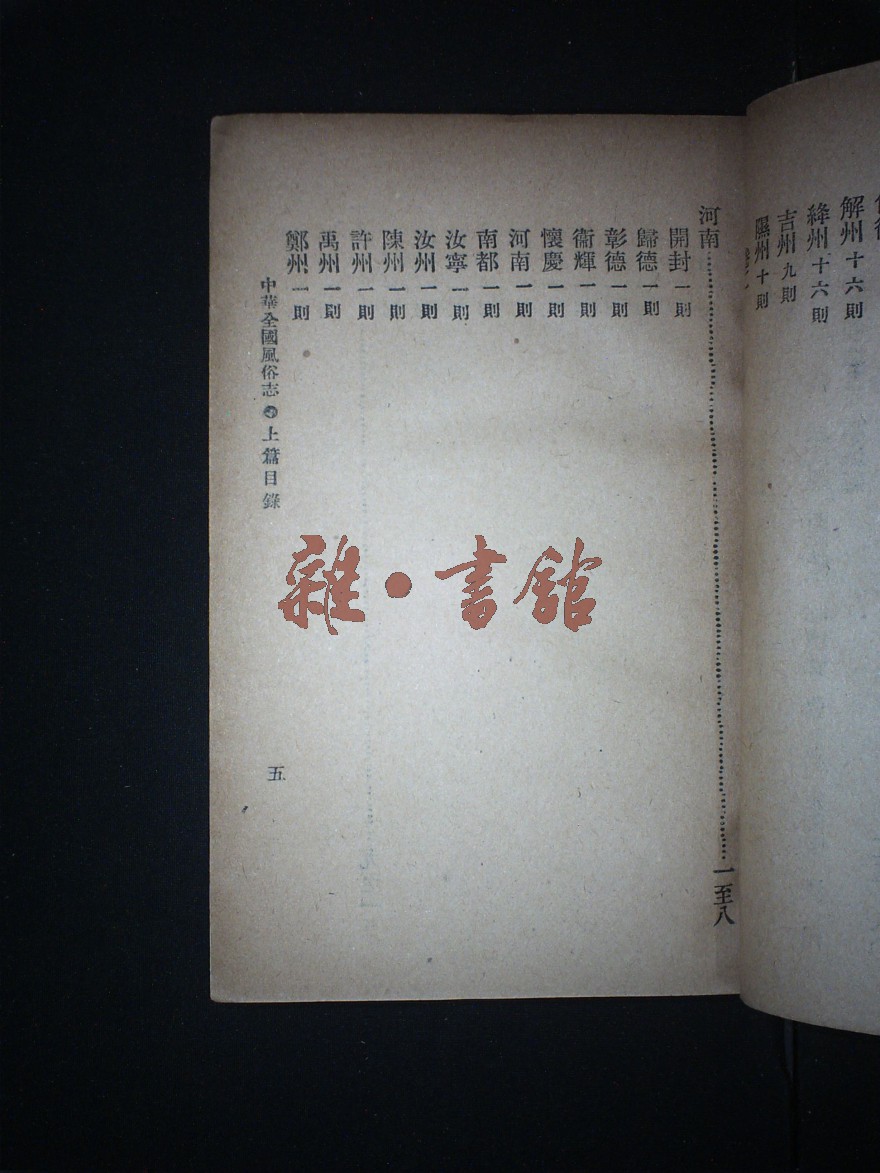 解州十六則
絳州十六則
吉州九則
隰州十則
河南……一至八
開封一則
歸德一則
彰德一則
衞輝一則
懷慶一則
河南一則
南都一則
汝寧一則
汝州一則
陳州一則
許州一則
禹州一則
鄭州一則
中華全國風俗志 上篇目錄 五
雜·書館